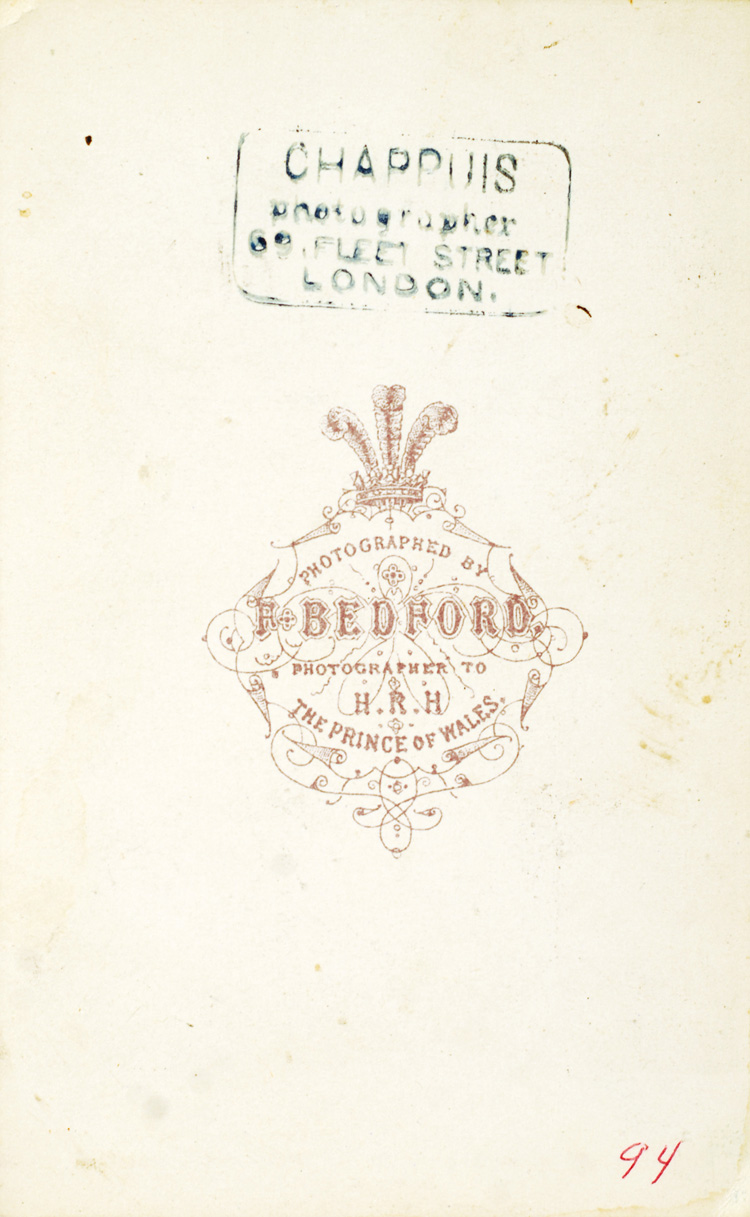 CHAPPUIS
photographer
69, FLEET STREET
LONDON.
PHOTOGRAPHED BY
F. BEDFORD,
PHOTOGRAPHER TO
H.R.H
THE PRINCE OF WALES.
94